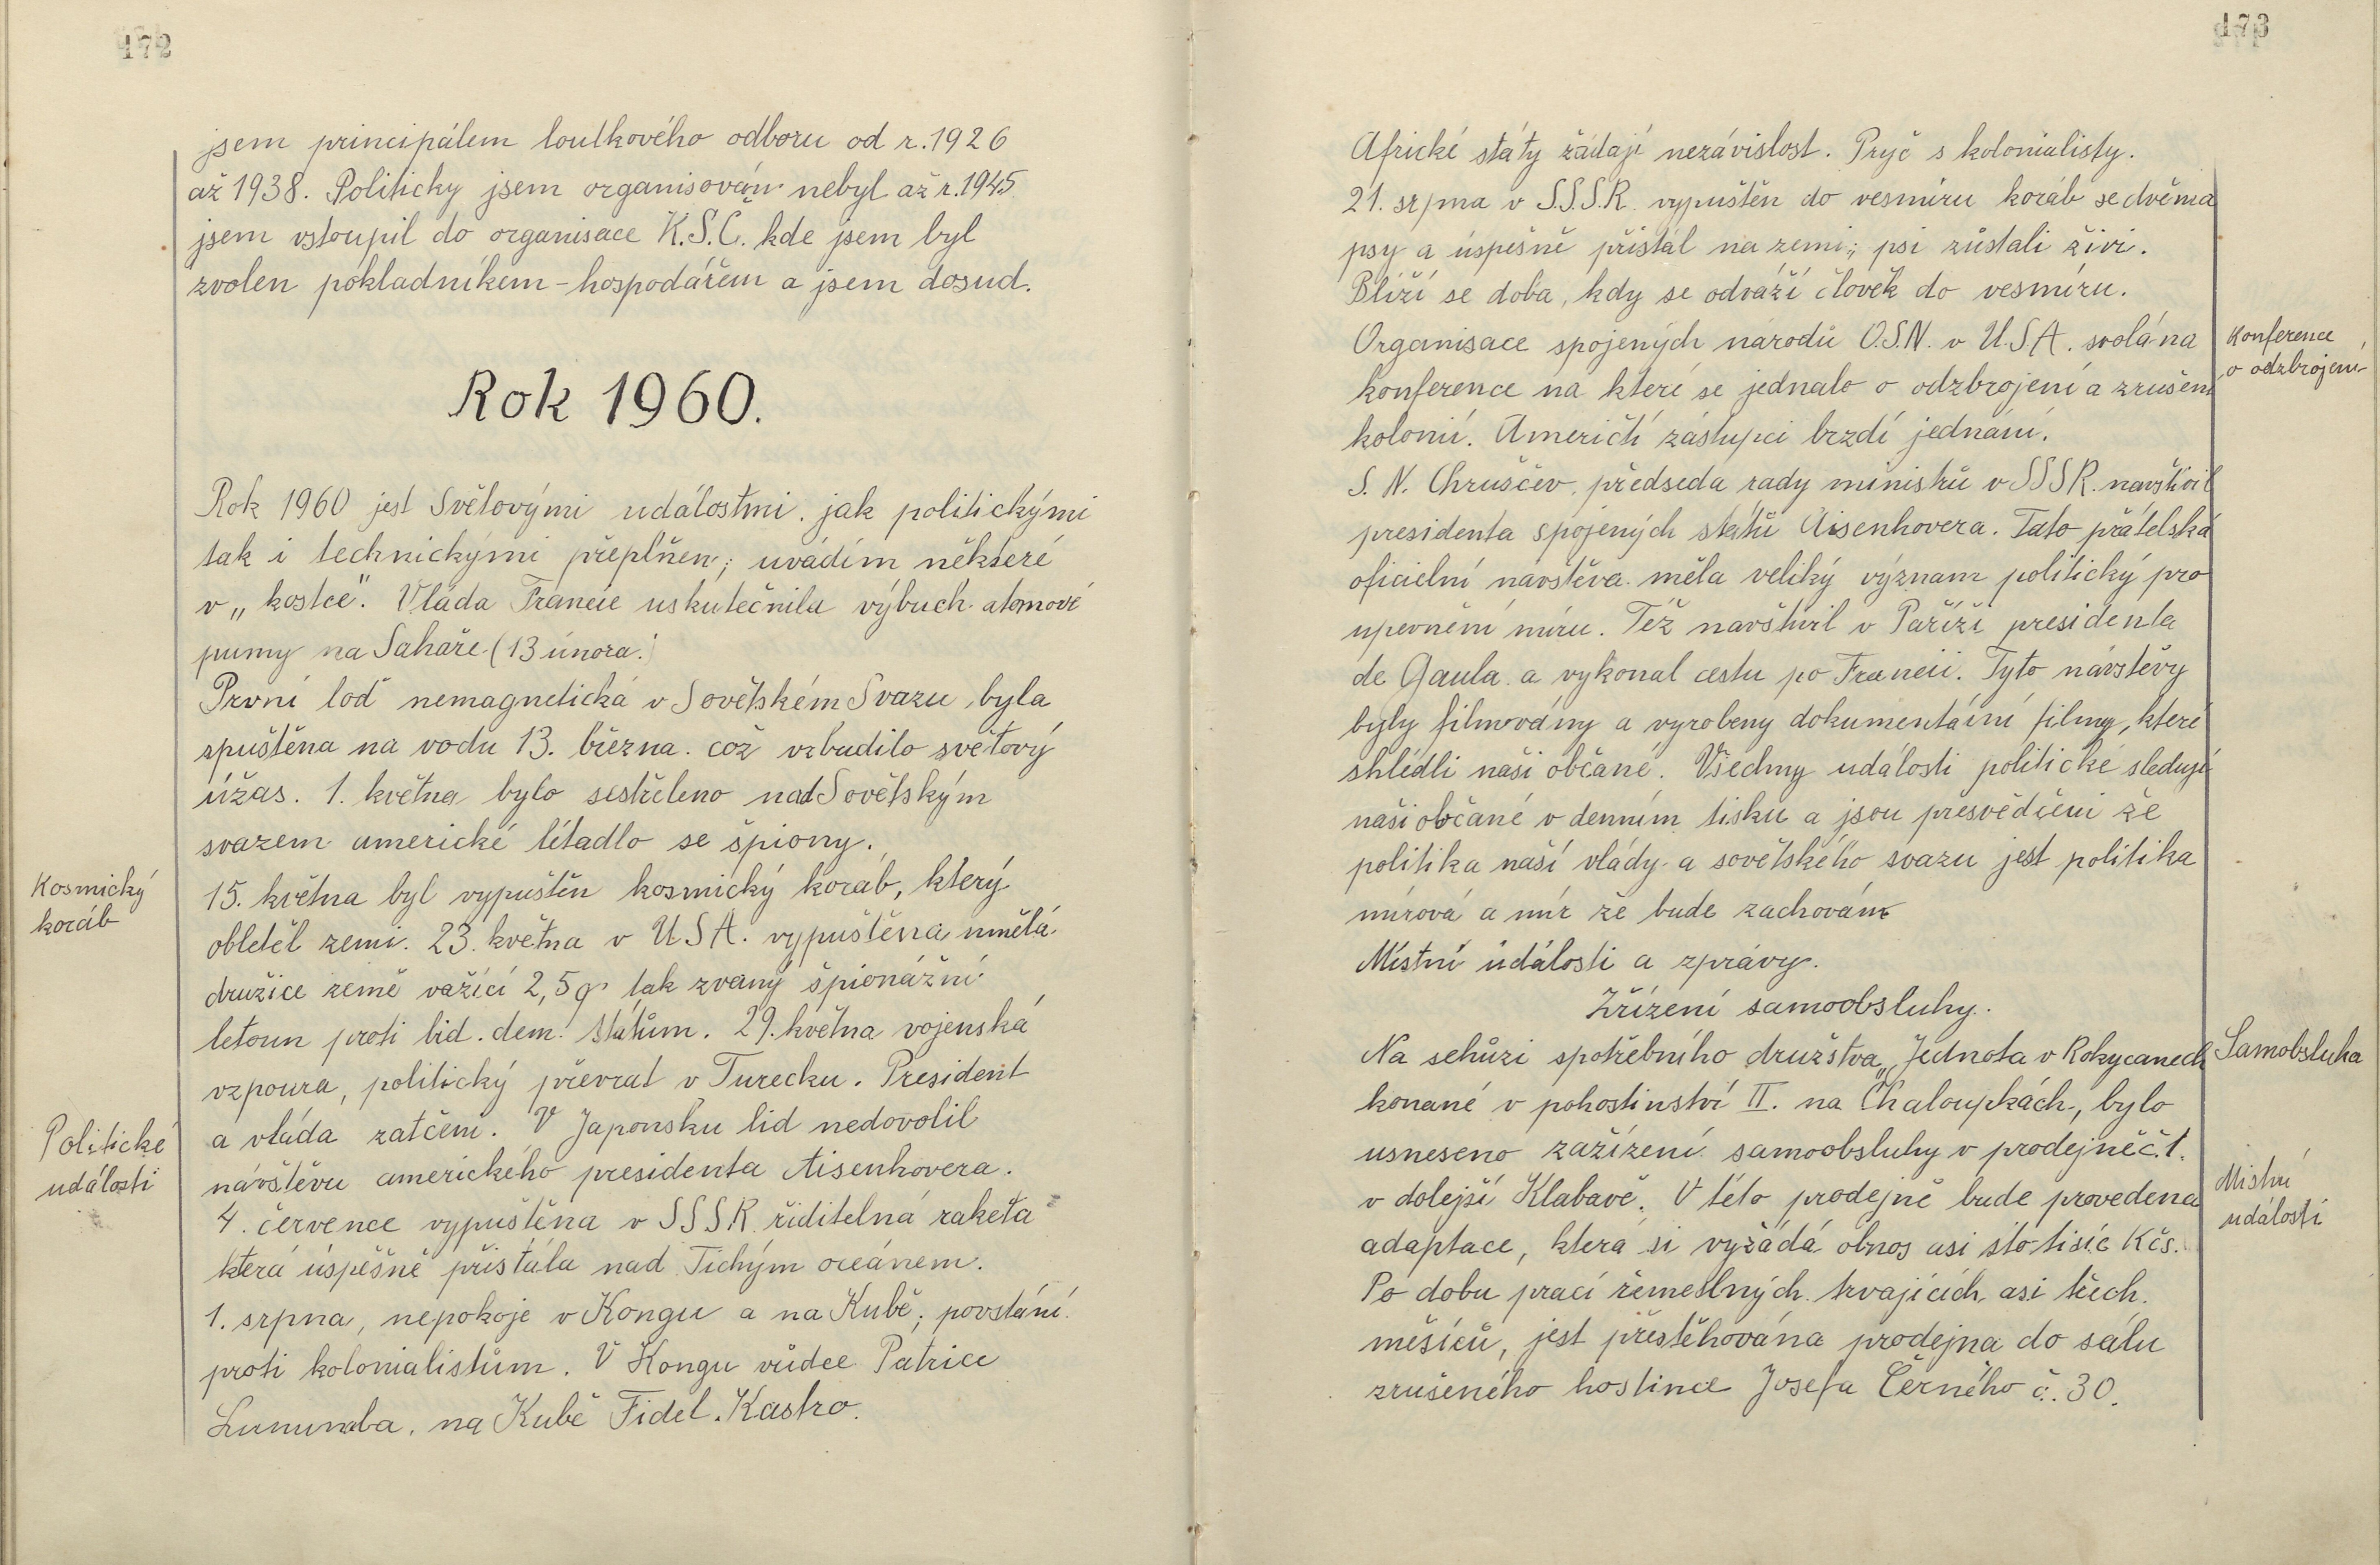 172
jsem principálem loutkového odboru od r. 1926
až 1938. Politicky jsem organisován nebyl až r. 1945
jsem vstoupil do organisace K.S.Č. kde jsem byl
zvolen pokladníkem - hospodářem a jsem dosud.
Rok 1960.
Rok 1960 jest Světovými událostmi, jak politickými
tak i technickými přeplňen; uvádím některé
v „kostce". Vláda Francie uskutečnila výbuch atomové
pumy na Sahaře (13 února.)
První loď nemagnetická v Sovětském Svazu, byla
spuštěna na vodu 13. března. což vzbudilo světový
úžas. 1. května bylo sestřeleno nad Sovětským
svazem americké létadlo se špiony.
Kosmický
koráb
15. května byl vypuštěn kosmický koráb, který
obletěl zemi. 23. května v USA. vypuštěna umělá
družice země važící 2,5 q tak zvaný špionážní
letoun proti lid. dem. státům. 29. května vojenská
vzpoura, politický převrat v Turecku. President
Politické
události
a vláda zatčeni. V Japonsku lid nedovolil
návštěvu amerického presidenta Aisenhovera.
4. července vypuštěna v SSSR řiditelná raketa
která úspěšně přistála nad Tichým oceánem.
1. srpna, nepokoje v Kongu a na Kubě; povstání
proti kolonialistům. V Kongu vůdce Patrice
Lumumba, na Kubě Fidel. Kastro.
173
Africké státy žádají nezávislost. Pryč s kolonialisty.
21. srpna v S.S.S.R. vypuštěn do vesmíru koráb se dvěma
psy a úspěšně přistál na zemi; psi zůstali živi.
Blíží se doba, kdy se odváží člověk do vesmíru.
Konference
o odzbrojení
Organisace spojených národů O.S.N. v U.S.A. svolána
konference na které se jednalo o odzbrojení a zrušení
kolonií. Američtí zástupci brzdí jednání.
S. N. Chruščev, předseda rady ministrů v SSSR. navštívil
presidenta spojených států Aisenhovera. Tato přátelská
oficielní návštěva měla veliký význam politický pro
upevnění míru. Též navštívil v Paříži presidenta
de Gaula a vykonal cestu po Francii. Tyto návštěvy
byly filmovány a vyrobeny dokumentární filmy, které
shlédli naši občané. Všechny události politické sledují
naši občané v denním tisku a jsou přesvědčeni že
politika naší vlády a sovětského svazu jest politika
mírová a mír že bude zachován.
Místní události a zprávy.
Zřízení samoobsluhy.
Samobsluha
Na schůzi spotřebního družstva „Jednota v Rokycanech
konané v pohostinství II. na Chaloupkách, bylo
usneseno zařízení samoobsluhy v prodejně č. 1.
Mistní
události
v dolejší Klabavě. V této prodejně bude provedena
adaptace, která si vyžádá obnos asi sto tisíc Kčs.
Po dobu prací řemeslných trvajících asi třech
měsíců, jest přestěhována prodejna do sálu
zrušeného hostince Josefa Černého č. 30.